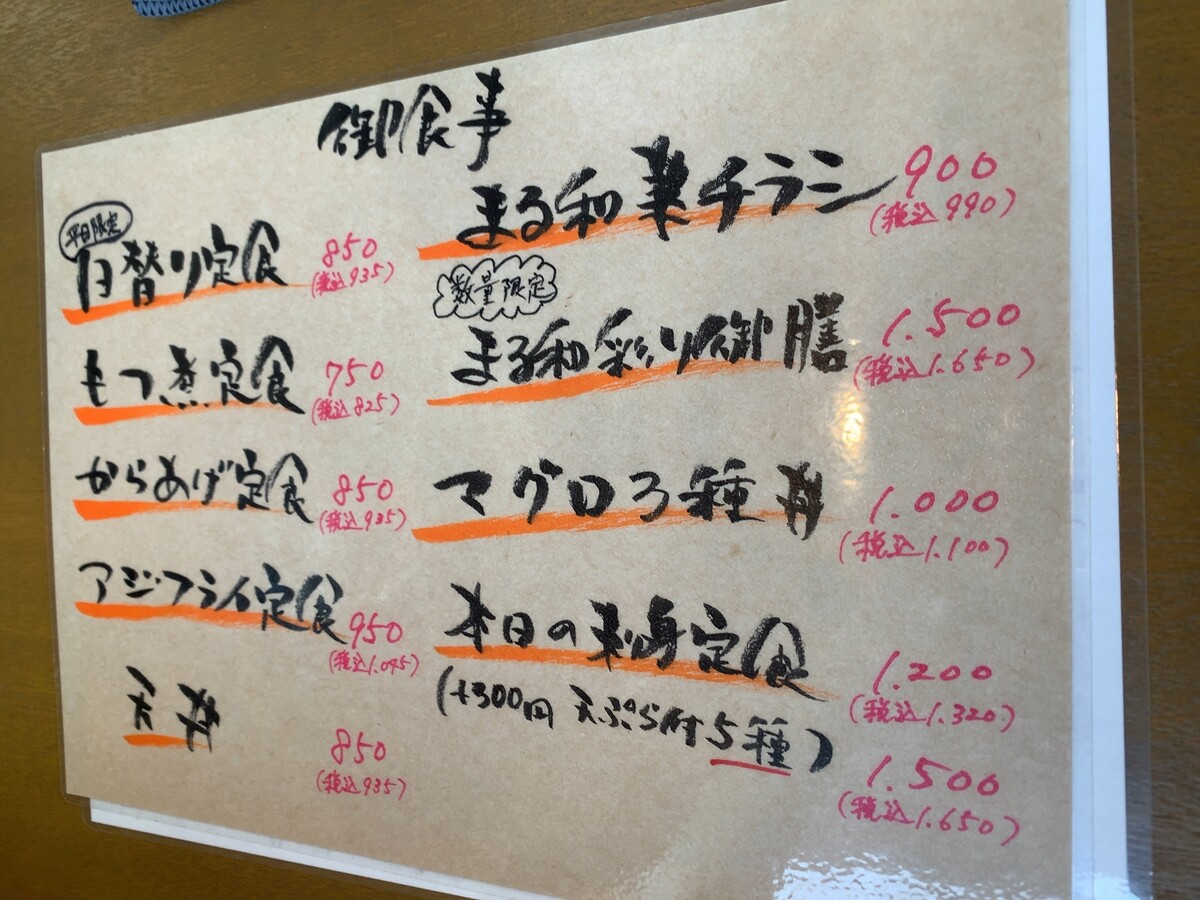 御食事
平日限定
日替り定食 850
(税込935)
もつ煮定食 750
(税込825)
からあげ定食 850
(税込935)
アジフライ定食 950
(税込1.045)
天丼 850
(税込935)
まる和 チラシ 900
(税込990)
数量限定
まる和彩り御膳 1.500
(税込1.650)
マグロ3種丼 1.000
(税込1.100)
本日の刺身定食 1.200
(税込1.320)
(+300円 天ぷら付5種) 1.500
(税込1.650)